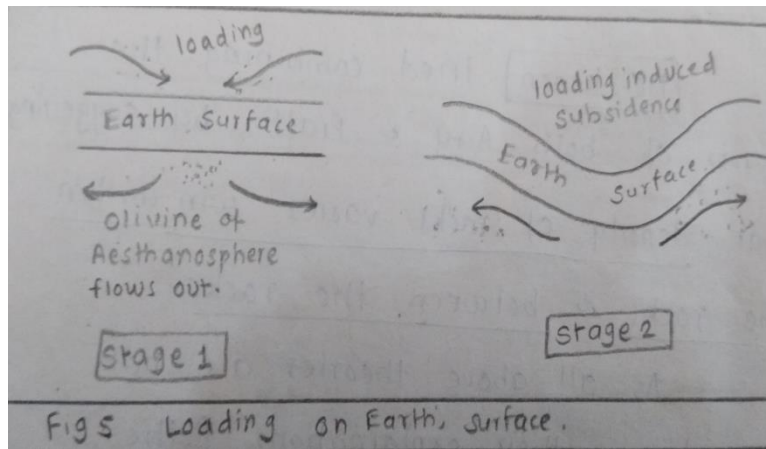 loading
Earth Surface
Olivine of
Aesthanosphere
flows out.
Stage 1
loading induced
Subsidence
Earth Surface
Stage 2
Fig 5 Loading on Earth, surface.